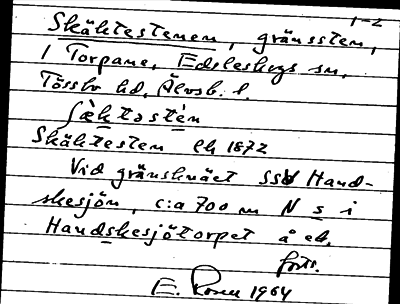 1-2
Skäktestenen, gränssten,
i Torpane, Edsleskogs sn,
Tössbo hd, Älvsb. l.
Skäktesten ek 1872
Vid gränsknäet SSV Hand-
skesjön, c:a 700 m N s i
Handskesjötorpet å ek.
forts.
E. Rosen 1964